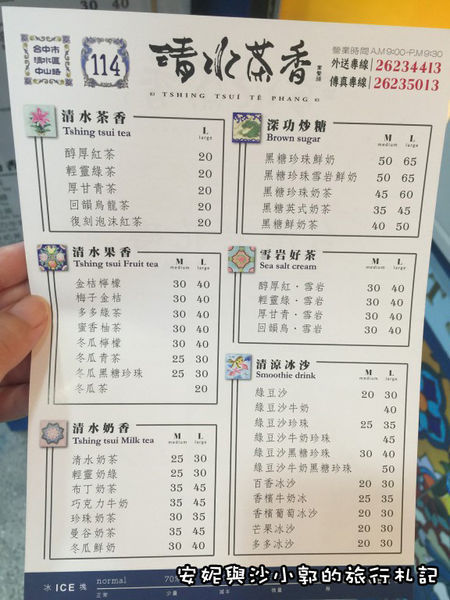 台中市
清水區
中山路
114
清水茶香
TSHING TSUÍ TÊ PHANG
營業時間 A.M 9:00-P.M 9:30
外送專線 26234413
傳真專線 26235013
清水茶香 L
Tshing tsui tea large
醇厚紅茶 20
輕靈綠茶 20
厚甘青茶 20
回韻烏龍茶 20
復刻泡沫紅茶 20
清水果香 M L
Tshing tsui Fruit tea medium large
金桔檸檬 30 40
梅子金桔 30 40
多多綠茶 30 40
蜜香柚茶 30 40
冬瓜檸檬 30 40
冬瓜青茶 25 30
冬瓜黑糖珍珠 25 30
冬瓜茶 20
清水奶香 M L
Tshing tsui Milk tea medium large
清水奶茶 25 30
輕靈奶綠 25 30
布丁奶茶 35 45
巧克力牛奶 35 45
珍珠奶茶 30 35
曼谷奶茶 35 45
冬瓜鮮奶 30 40
深功炒糖 M L
Brown sugar medium large
黑糖珍珠鮮奶 50 65
黑糖珍珠雪岩鮮奶 50 65
黑糖珍珠奶茶 45 60
黑糖英式奶茶 35 45
黑糖鮮奶茶 40 50
雪岩好茶 M L
Sea salt cream medium large
醇厚紅·雪岩 30 40
輕靈綠·雪岩 30 40
厚甘青·雪岩 30 40
回韻烏·雪岩 30 40
清涼冰沙 M L
Smoothie drink medium large
綠豆沙 20 30
綠豆沙牛奶 40
綠豆沙珍珠 25 35
綠豆沙牛奶珍珠 45
綠豆沙黑糖珍珠 30 40
綠豆沙牛奶黑糖珍珠 50
百香冰沙 20 30
香檳牛奶冰 25 35
香檳葡萄冰沙 20 30
芒果冰沙 20 30
多多冰沙 20 30
冰 ICE 塊 normal 70%
正常 少量
安妮與沙小郭的旅行札記